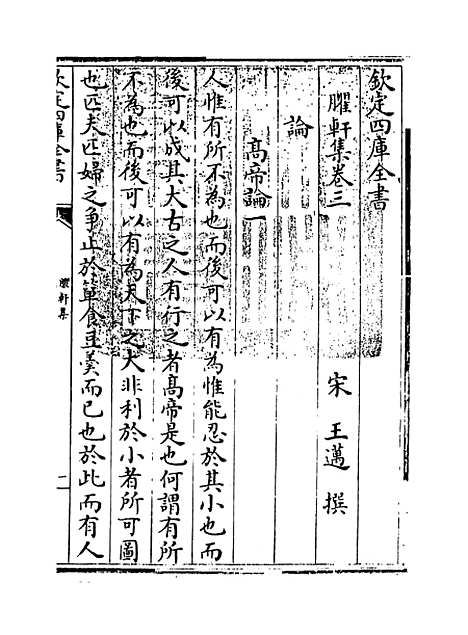 欽定四庫全書
臞軒集卷三
宋 王邁 撰
論
高帝論一
人惟有所不為也而後可以有為惟能忍於其小也而
後可以成其大古之人有行之者高帝是也何謂有所
不為也而後可以有為天下之大非利於小者所可圖
也匹夫匹婦之爭止於簞食豆羹而已也於此而有人
欽定四庫全書
臞軒集
一